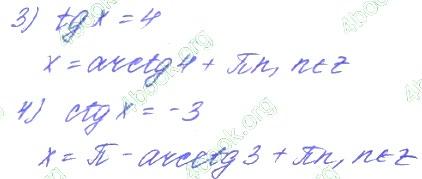 3) tg x = 4
x = arctg 4 + πn, n ∈ z
4) ctg x = -3
x = π - arcctg 3 + πn, n ∈ z